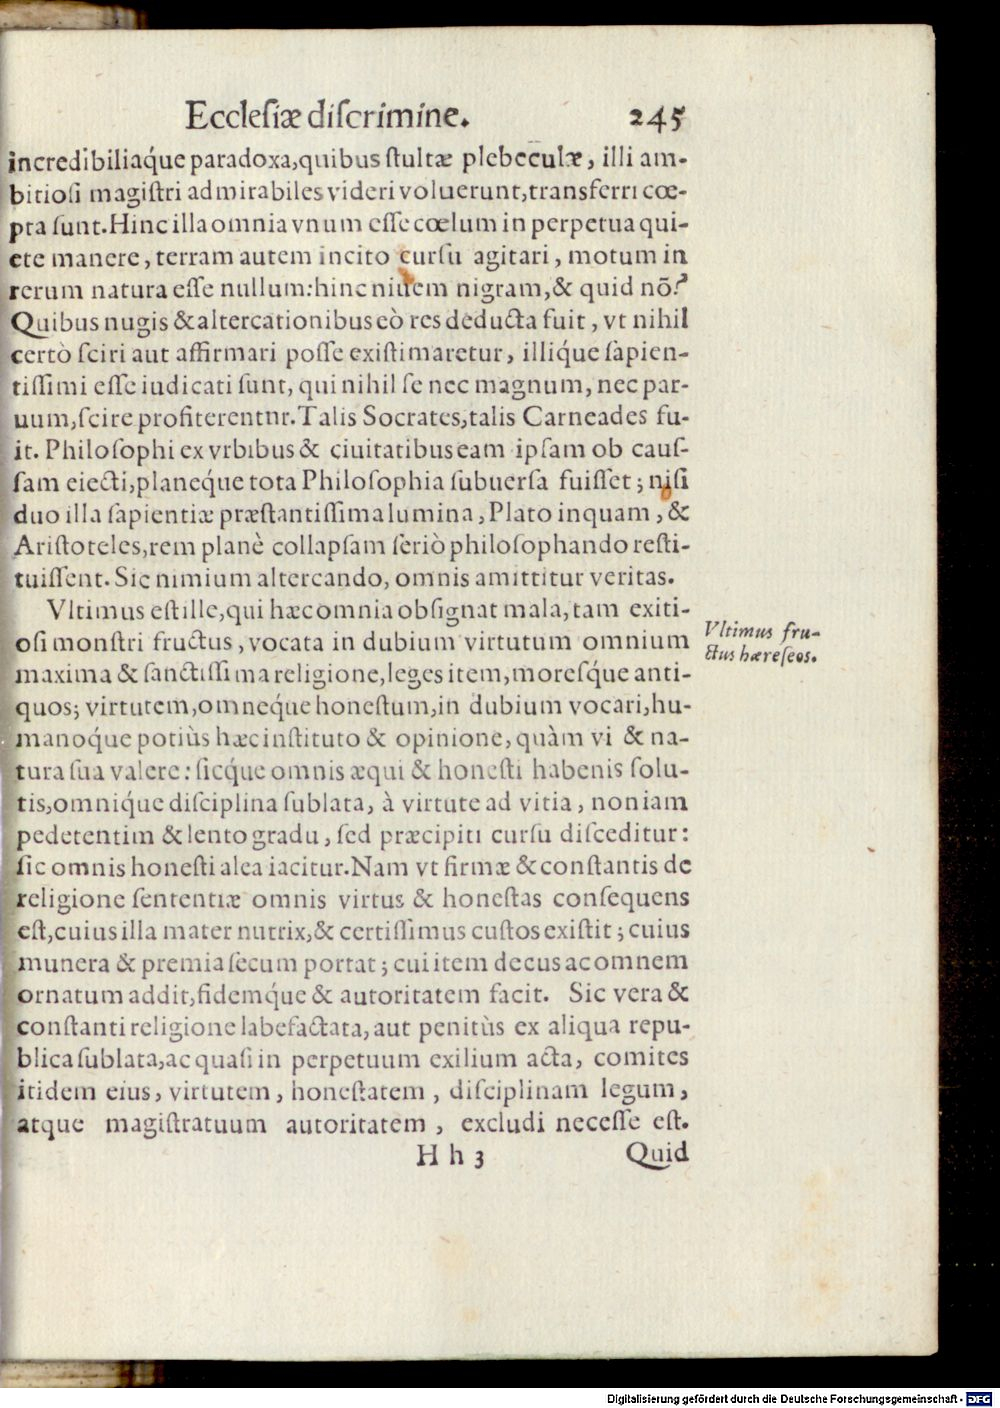 Ecclesiæ discrimine. 245
incredibiliaq́ue paradoxa,quibus stultæ plebeculæ, illi am-
bitiosi magistri admirabiles videri voluerunt,transferri cœ-
pta sunt.Hinc illa omnia vnum esse cœlum in perpetua qui-
ete manere, terram autem incito cursu agitari, motum in
rerum natura esse nullum:hinc niuem nigram,& quid nõ?
Quibus nugis & altercationibus eò res deducta fuit, vt nihil
certò sciri aut affirmari posse existimaretur, illiq́ue sapien-
tissimi esse iudicati sunt, qui nihil se nec magnum, nec par-
uum,scire profiterentnr.Talis Socrates,talis Carneades fu-
it. Philosophi ex vrbibus & ciuitatibus eam ipsam ob caus-
sam eiecti,planeq́ue tota Philosophia subuersa fuisset; nisi
duo illa sapientiæ præstantissima lumina, Plato inquam, &
Aristoteles,rem planè collapsam seriò philosophando resti-
tuissent. Sic nimium altercando, omnis amittitur veritas.
Vltimus est ille,qui hæc omnia obsignat mala,tam exiti-
osi monstri fructus, vocata in dubium virtutum omnium
maxima & sanctissima religione,leges item,moresq́ue anti-
quos; virtutem,omneq́ue honestum,in dubium vocari,hu-
manoq́ue potiùs hæc instituto & opinione, quàm vi & na-
tura sua valere: sicq́ue omnis æqui & honesti habenis solu-
tis,omniq́ue disciplina sublata, à virtute ad vitia, non iam
pedetentim & lento gradu, sed præcipiti cursu disceditur:
sic omnis honesti alea iacitur.Nam vt firmæ & constantis de
religione sententiæ omnis virtus & honestas consequens
est,cuius illa mater nutrix,& certissimus custos existit; cuius
munera & premia secum portat; cui item decus ac omnem
ornatum addit,fidemq́ue & autoritatem facit. Sic vera &
constanti religione labefactata, aut penitùs ex aliqua repu-
blica sublata,ac quasi in perpetuum exilium acta, comites
itidem eius, virtutem, honestatem, disciplinam legum,
atque magistratuum autoritatem, excludi necesse est.
H h 3 Quid
Vltimus fru-
ctus hæreseos.
Digitalisierung gefördert durch die Deutsche Forschungsgemeinschaft - DFG